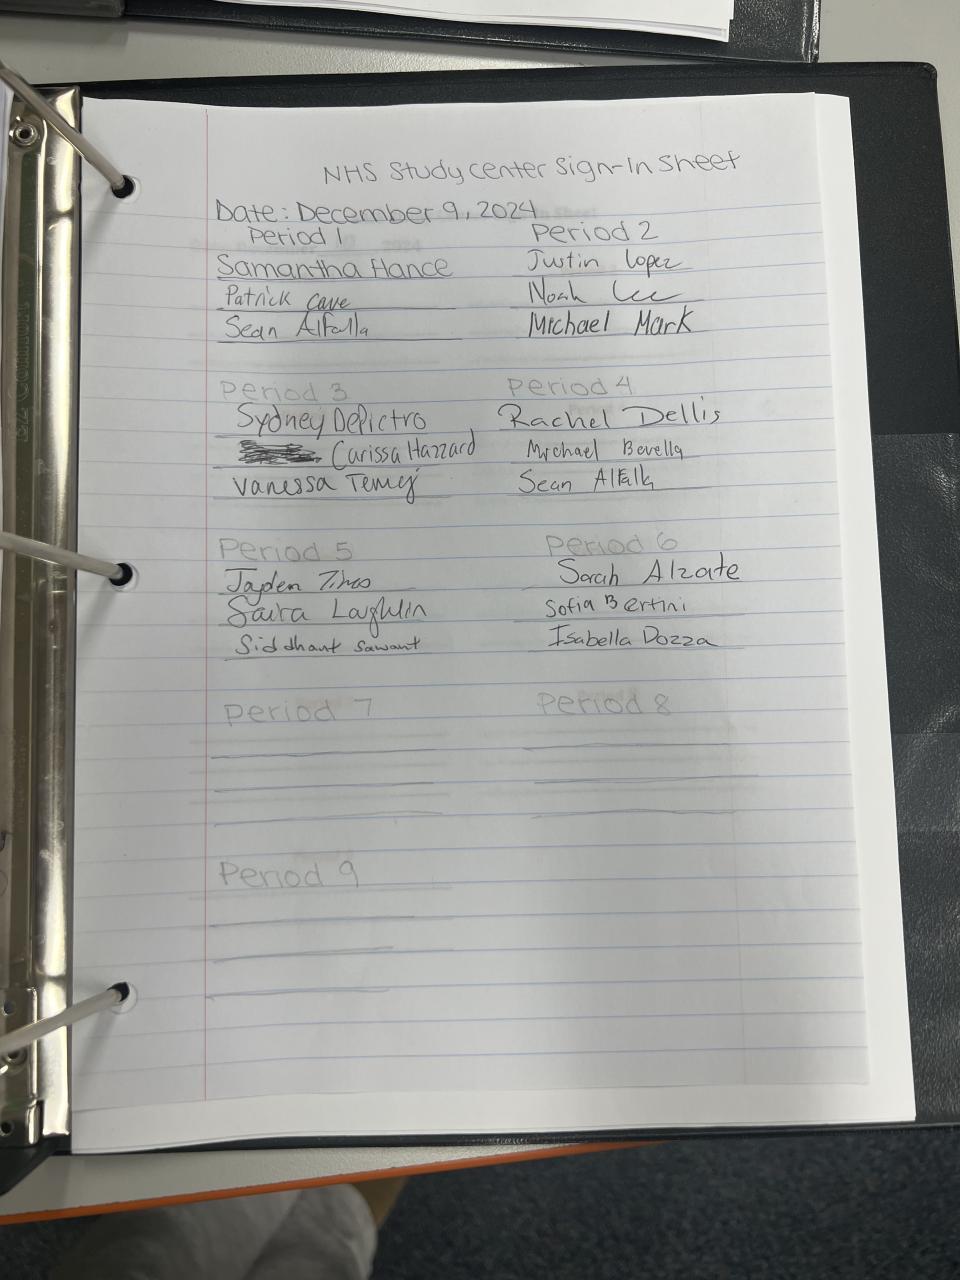 NHS Study center Sign-In Sheet
Date: December 9, 2024
Period 1
Samantha Hance
Patrick Cave
Sean Alfalla
Period 2
Justin Lopez
Noah Lee
Michael Mark
Period 3
Sydney DePietro
Carissa Hazzard
Vanessa
Period 4
Rachel Dellis
Michael Bevella
Sean Alfalla
Period 5
Jayden
Saira Laughlin
Siddhant Sawant
Period 6
Sarah Alzate
Sofia Bertini
Isabella Dozza
Period 7
Period 8
Period 9